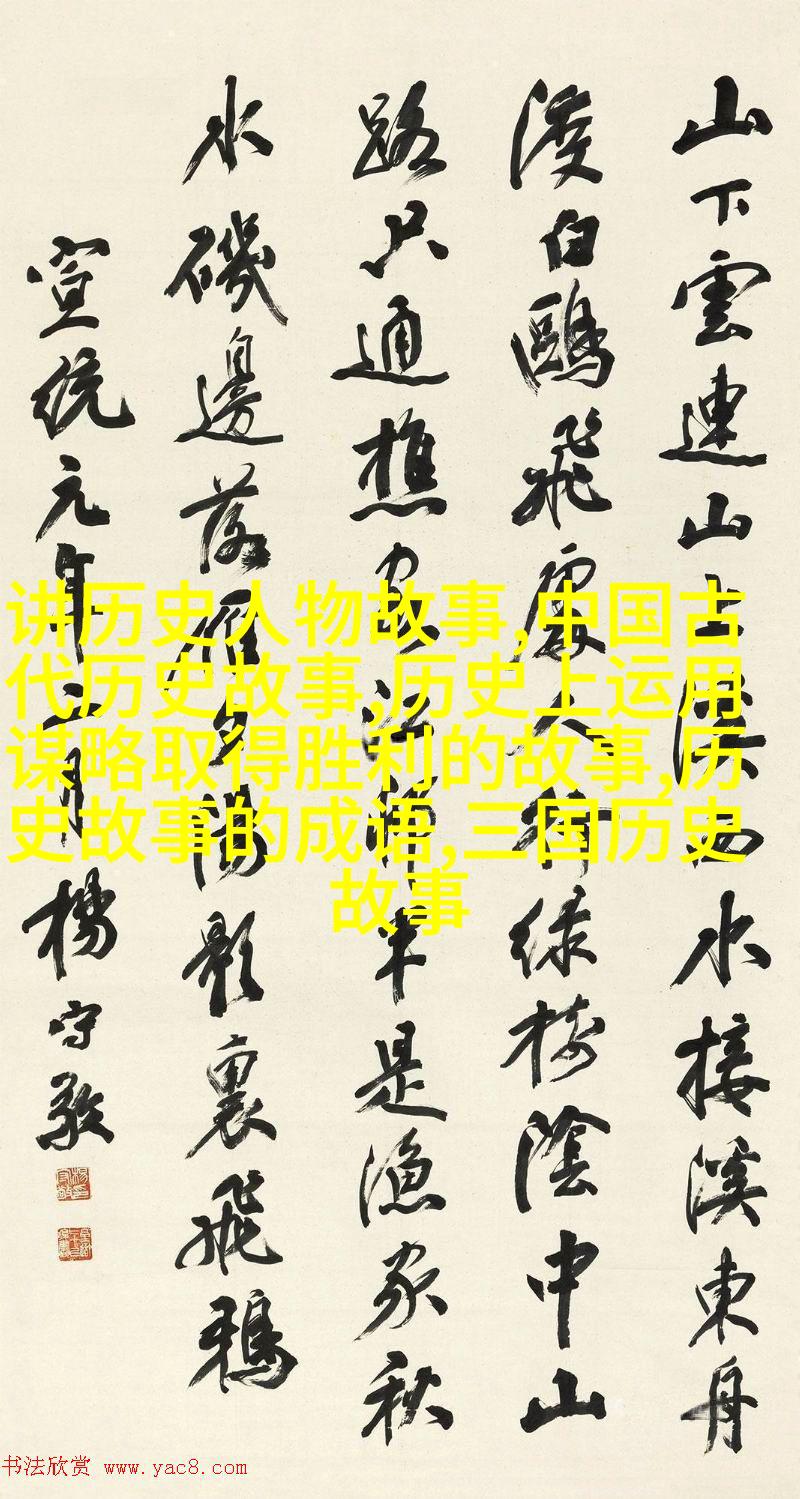 山下雲連山上溪西水接溪東舟
渡白鷗飛處人行綠樹陰中山
路只通樵客江村半是漁家秋
水磯邊落雁夕陽影裏飛鴉
宣統元年二月楊守敬
讲历史人物故事,中国古
代历史故事,历史上运用
谋略取得胜利的故事,历
史故事的成语,三国历史
故事
书法欣赏 www.yac8.com